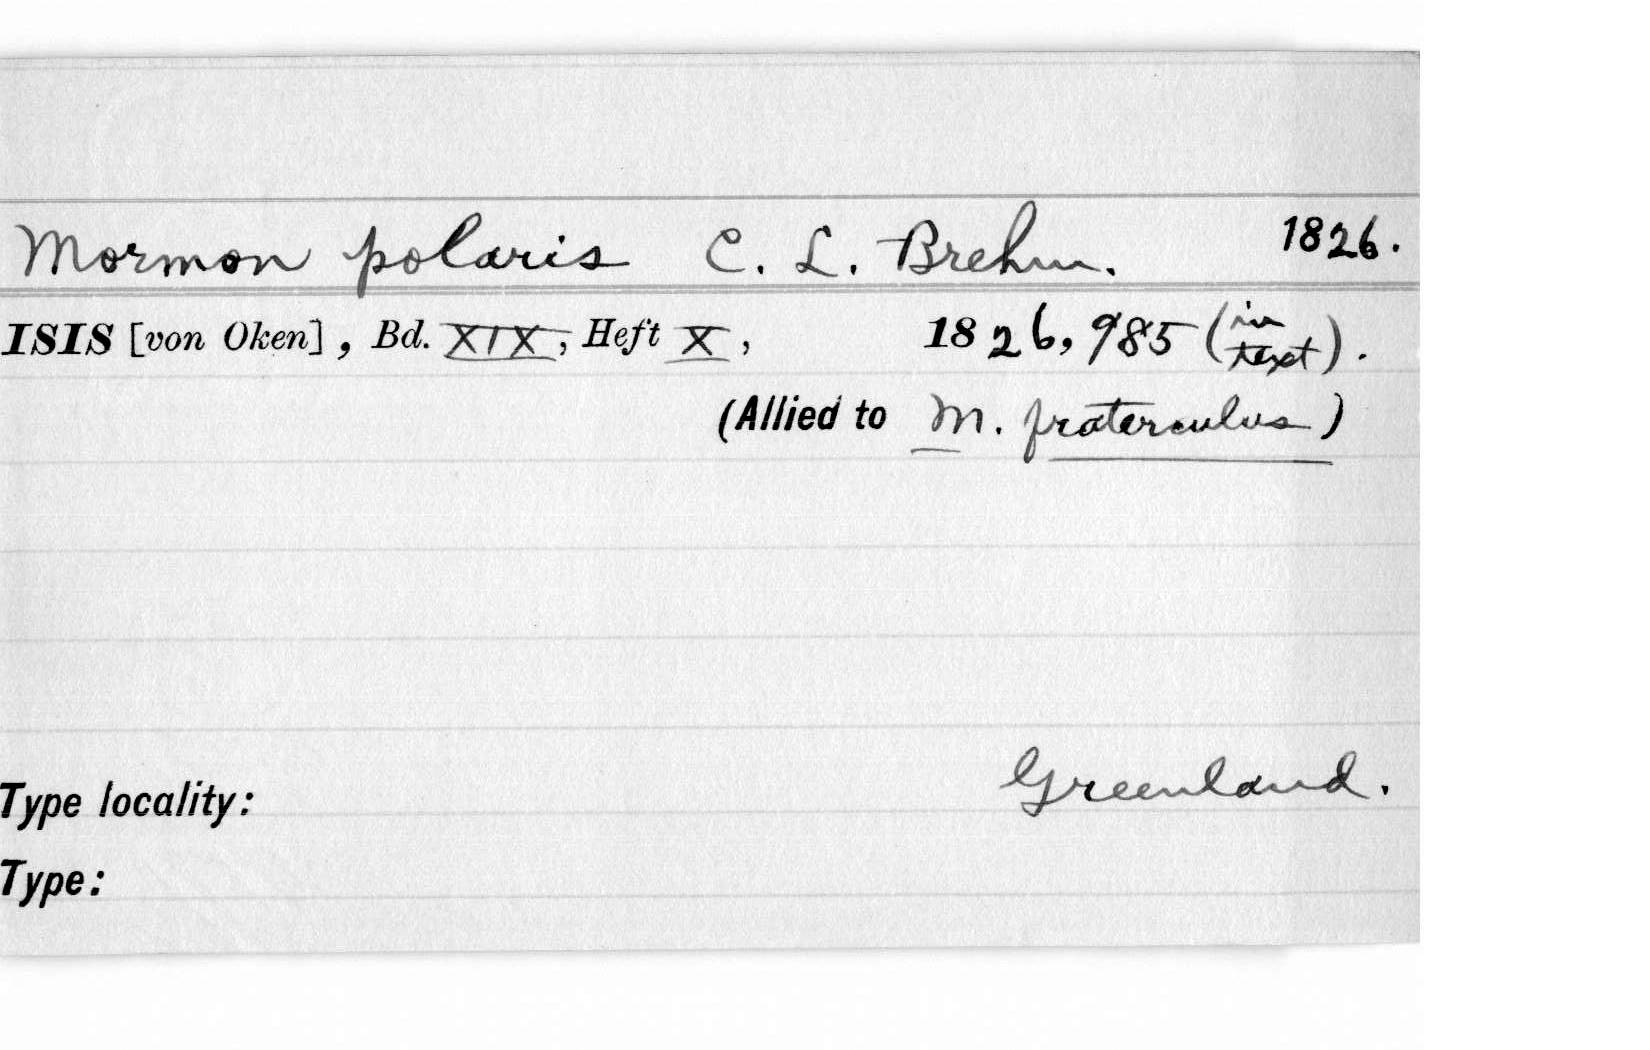 Mormon polaris C. L. Brehm. 1826.
ISIS [von Oken], Bd. XIX, Heft X, 1826, 985 (in text).
(Allied to M. fraterculus)
Type locality: Greenland.
Type: